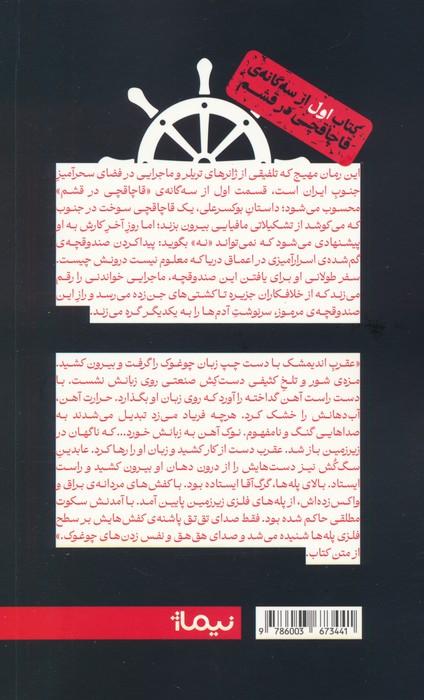 کتاب اول از سه‌گانه‌ی
قاچاقچی در قشم
این رمان مهیج که تلفیقی از ژانرهای تریلر و ماجرایی در فضای سحرآمیز
جنوب ایران است، قسمت اول از سه‌گانه‌ی «قاچاقچی در قشم»
محسوب می‌شود؛ داستانِ بوکسرعلی، یک قاچاقچی سوخت در جنوب
که می‌کوشد از تشکیلاتی مافیایی بیرون بزند؛ اما روز آخر کارش به او
پیشنهادی می‌شود که نمی‌تواند «نه» بگوید: پیداکردن صندوقچه‌ی
گم‌شده‌ی اسرارآمیزی در اعماق دریا که معلوم نیست درونش چیست.
سفر طولانی او برای یافتن این صندوقچه، ماجرایی خواندنی را رقم
می‌زند که از خلافکاران جزیره تا کشتی‌های جن‌زده می‌رسد و راز این
صندوقچه‌ی مرموز، سرنوشت آدم‌ها را به یکدیگر گره می‌زند.
«عقربِ اندیمشک با دست چپ زبان چوغوک را گرفت و بیرون کشید.
مزدی شور و تلخِ کثیفی دست‌کِش صنعتی روی زبانش نشست. با
دست راست آهن گداخته را آورد که روی زبان او بگذارد. حرارت آهن،
آب‌دهانش را خشک کرد. هرچه فریاد می‌زد تبدیل می‌شدند به
صداهایی گنگ و نامفهوم. نوک آهن به زبانش خورد... که ناگهان در
زیرزمین باز شد. عقرب دست از کار کشید و زبان او را رها کرد. عابدین
سگ‌کُش نیز دست‌هایش را از درون دهان او بیرون کشید و راست
ایستاد. بالای پله‌ها، گرگ‌آقا ایستاده بود. با کفش‌های مردانه‌ی براق و
واکس‌زده‌اش، از پله‌های فلزی زیرزمین پایین آمد. با آمدنش سکوت
مطلقی حاکم شده بود. فقط صدای تق‌تق پاشنه‌ی کفش‌هایش بر سطح
فلزی پله‌ها شنیده می‌شد و صدای هق‌هق و نفس زدن‌های چوغوک.»
از متن کتاب.
نیماژ
9 786003 673441